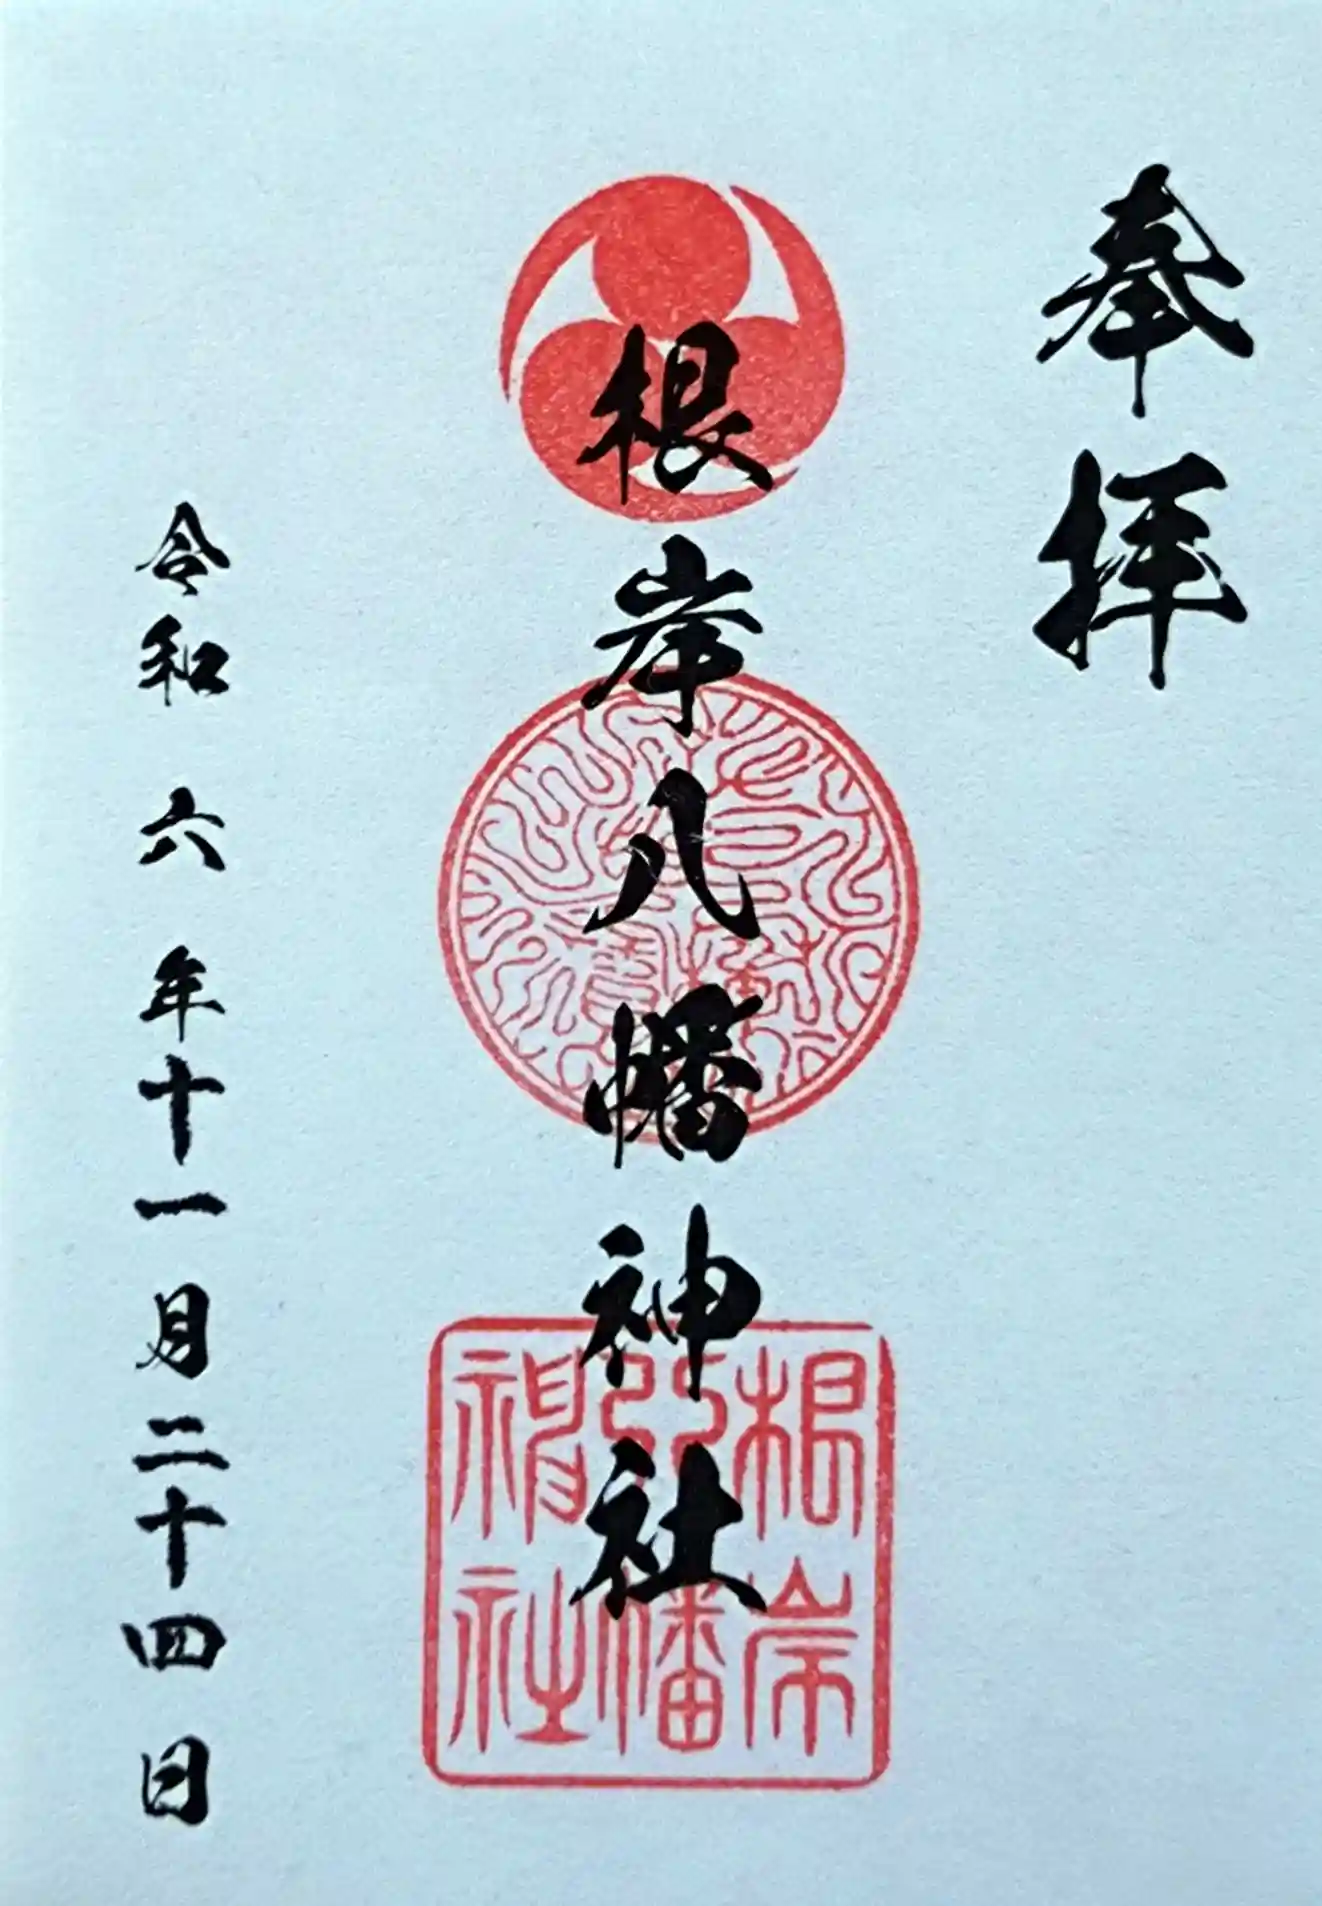 奉拝
根岸八幡神社
根岸
八幡
神社
令和六年十一月二十四日